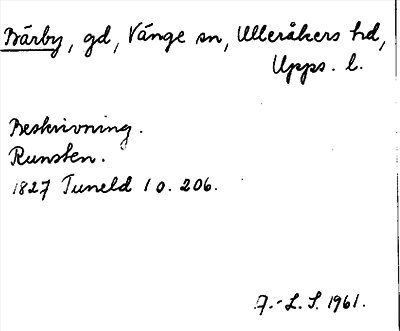 Bärby, gd, Vänge sn, Ulleråkers hd,
Upps. l.
Beskrivning.
Runsten.
1827 Tuneld 1 o. 206.
7.-L. S. 1961.